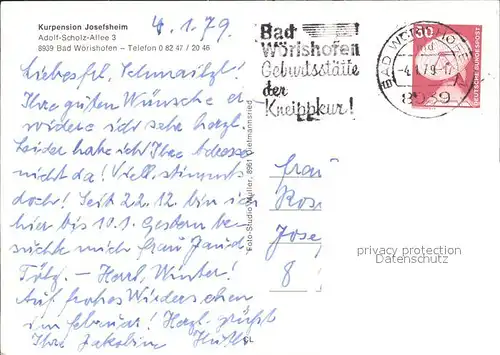 Kurpension Josefsheim
Adolf-Scholz-Allee 3
8939 Bad Wörishofen – Telefon 0 82 47 / 20 46
4.1.79.
Bad
Wörishofen
Geburtsstätte
der
Kneippkur!
BAD WÖRISHOFEN
-4.1.79-17
8939
DEUTSCHE BUNDESPOST
Ihre guten Wünsche er-
widere ich sehr herzl.
Leider habe ich Ihre Adresse
nicht da! Viell. stimmts
doch! Seit 22.12. bin ich
hier bis 10.1. Gestern be-
suchte mich Frau
Tölz. – Herrl. Winter!
Auf frohes Wiedersehen
im Februar! Herzl. grüßt
Ihre Jakobine
Foto-Studio Müller, 8961 Dietmannsried
Frau
Jose
8
privacy protection
Datenschutz